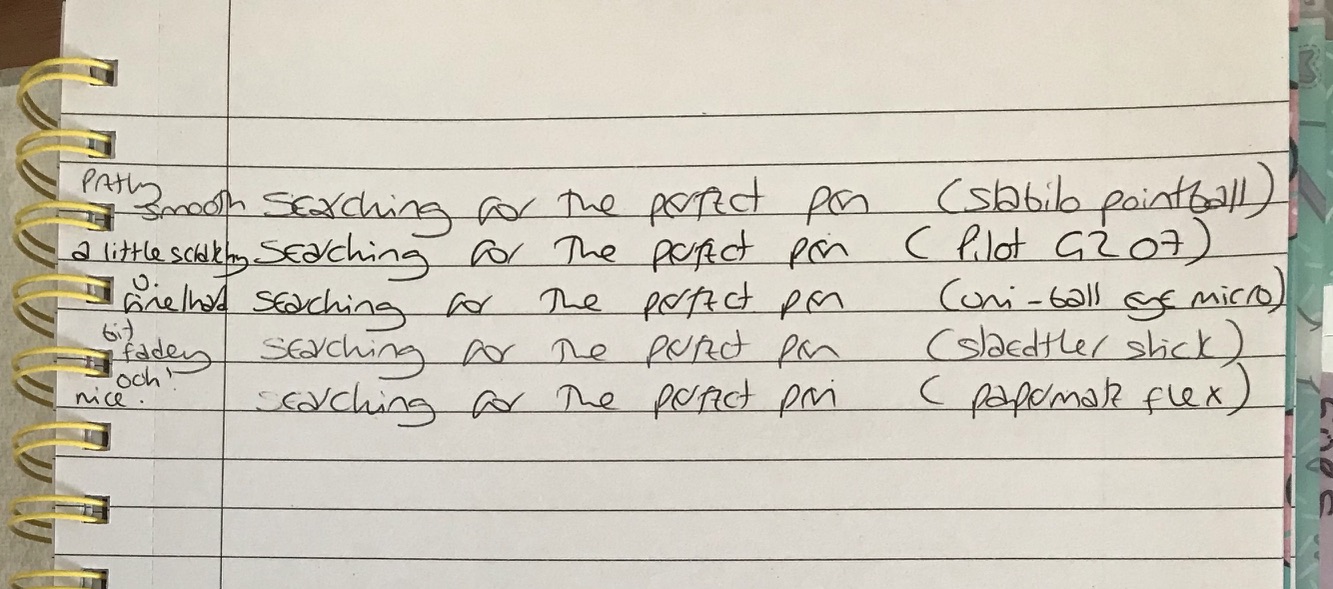 Pretty
smooth searching for the perfect pen (stabilo pointball)
a little scratchy searching for the perfect pen (Pilot G2 07)
fine/hard searching for the perfect pen (uni-ball eye micro)
bit
fadey searching for the perfect pen (staedtler stick)
ooh!
nice. searching for the perfect pen (papermate flex)